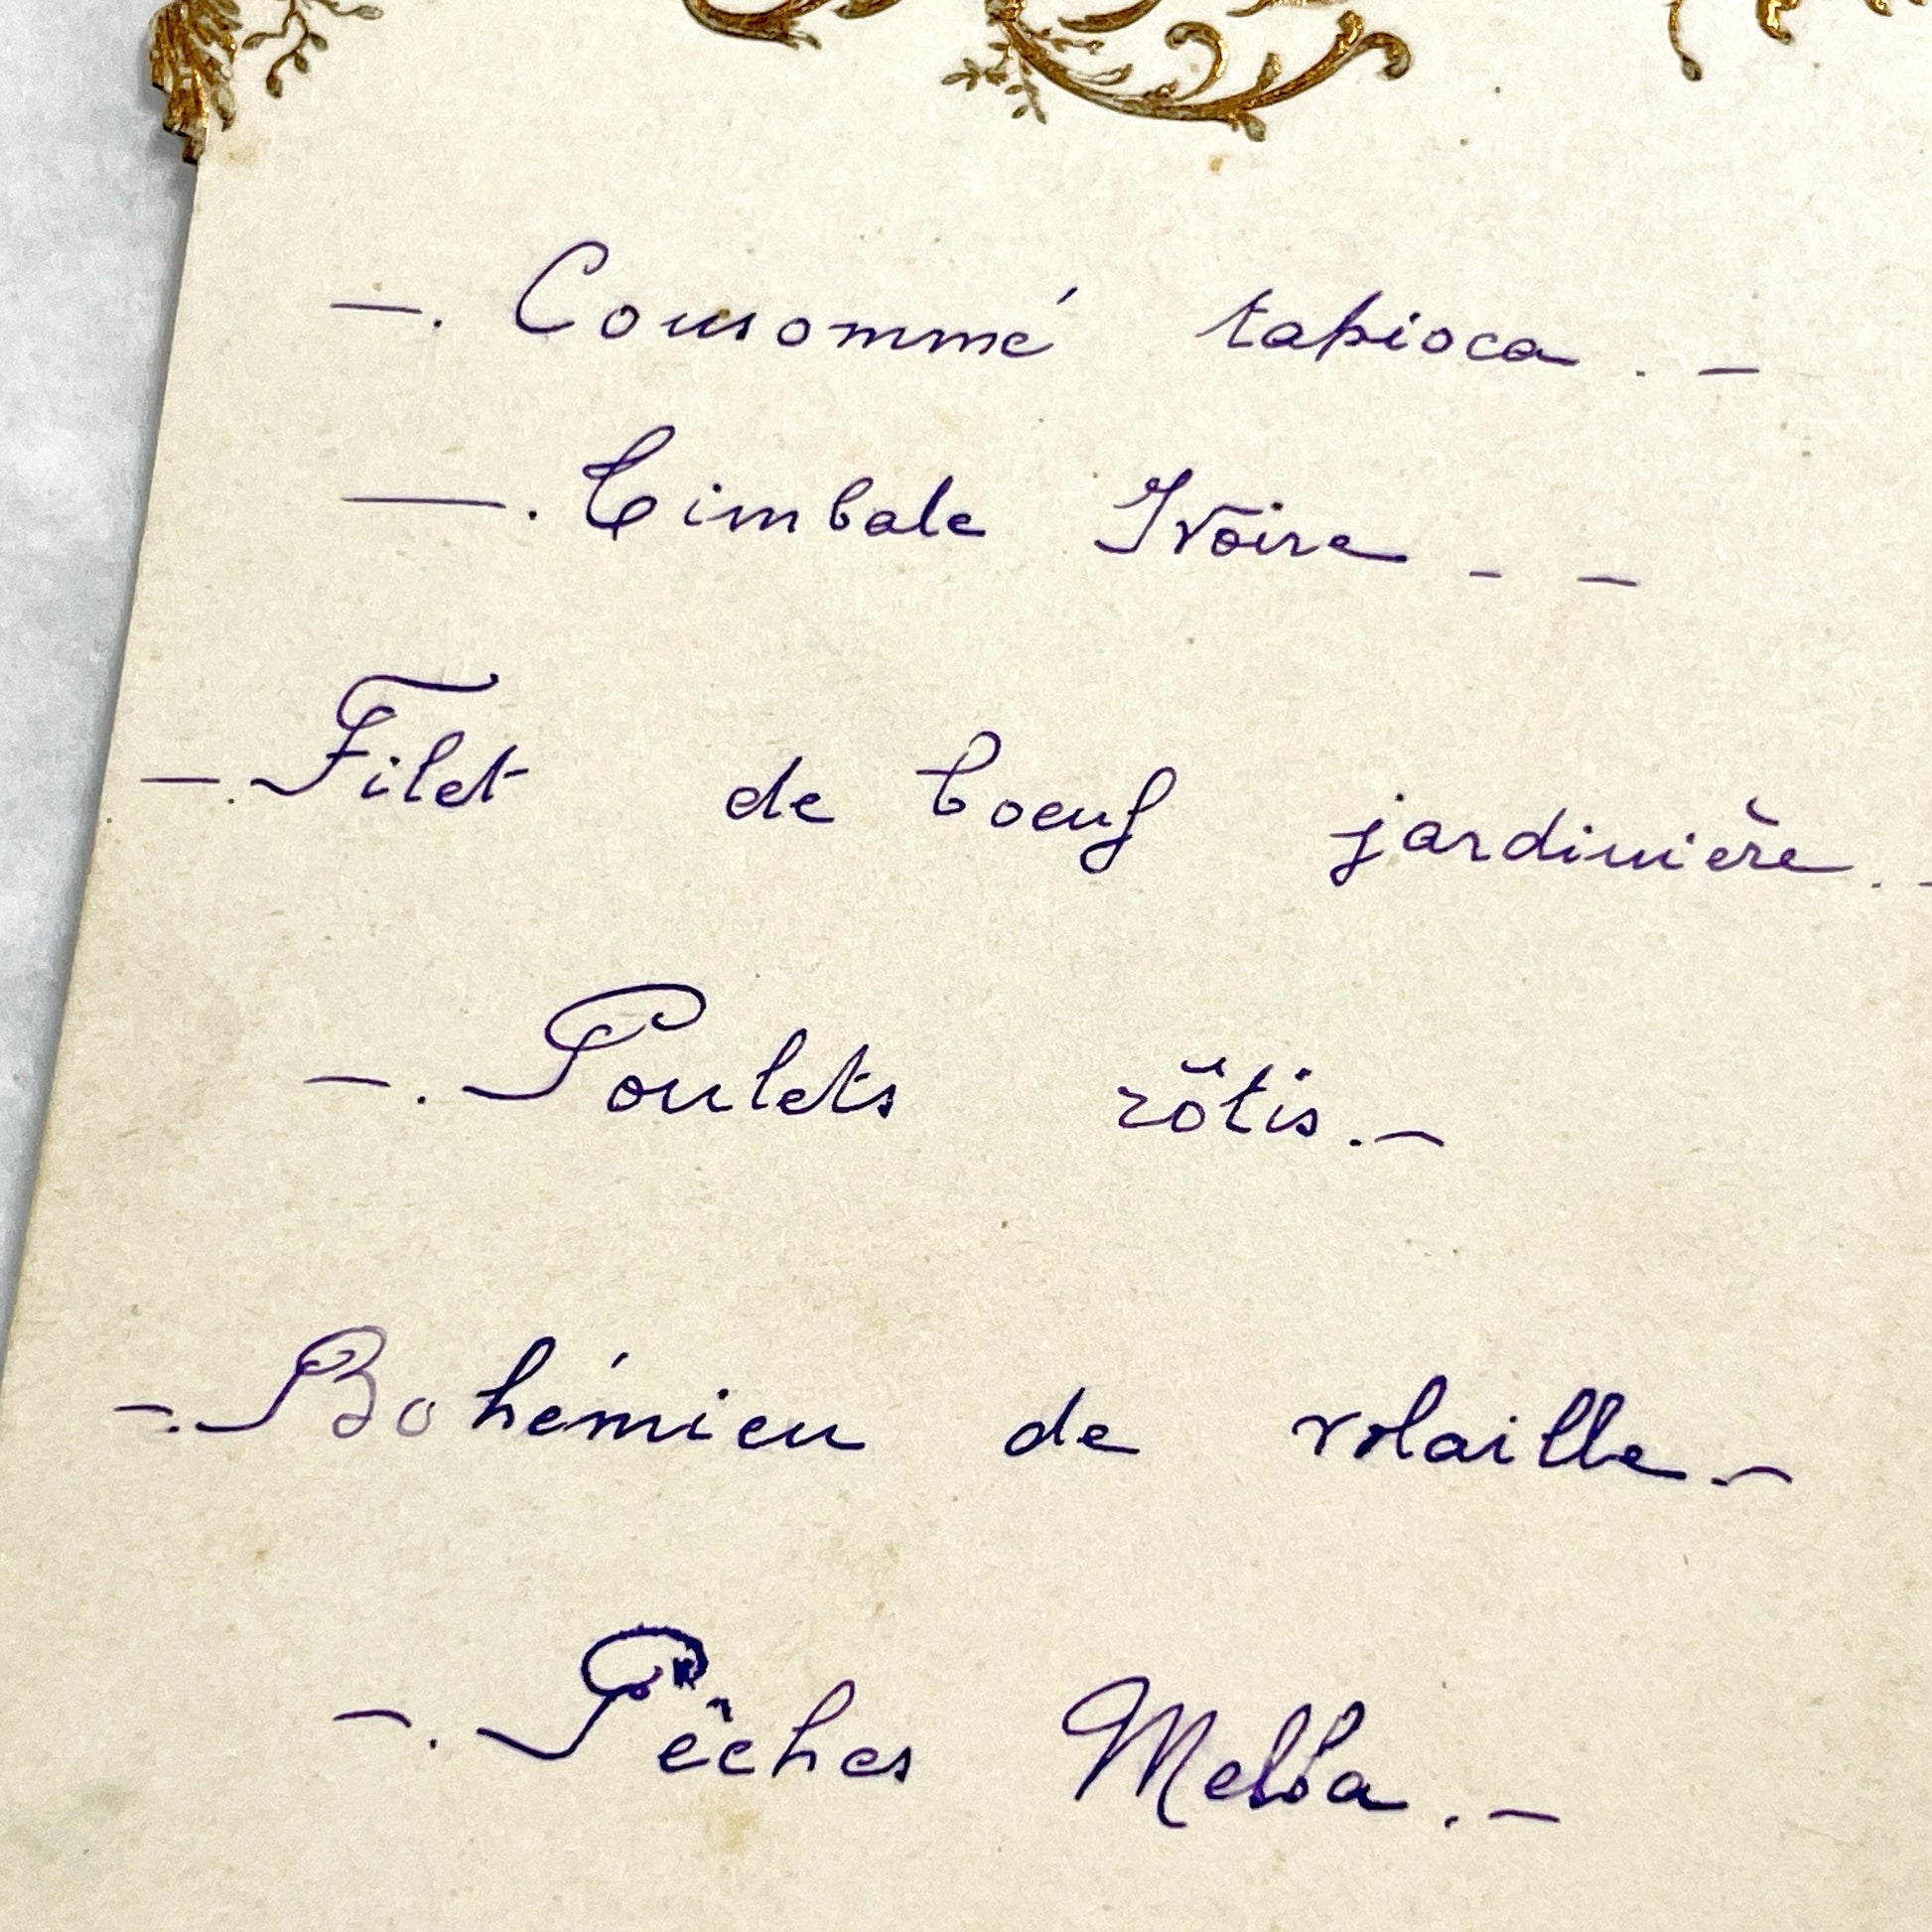 —. Consommé tapioca. —
—. Timbale Ivoire - -
—. Filet de boeuf jardinière. -
—. Poulets rôtis. —
-. Bohémien de volaille. —
—. Pêches Melba. —